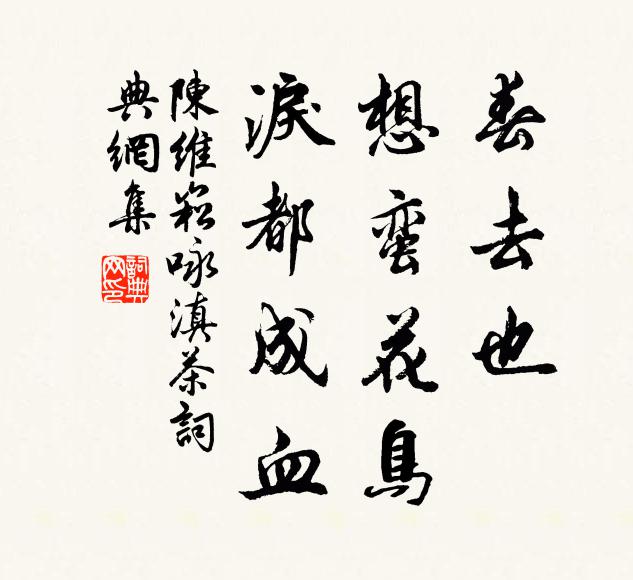 春去也
想蛮花鳥
淚都成血
陳維崧咏滇茶詞
典網集
詞典网印